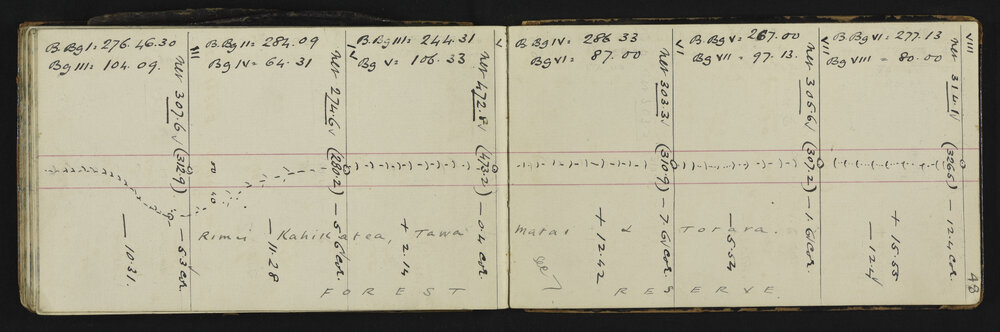 B. Bg I = 276.46.30
Bg III = 104.09.
III
B. Bg II = 284.09
Bg IV = 64.31
IV
B. Bg III = 244.31
Bg V = 106.33
V
B. Bg IV = 286 33
Bg VI = 87.00
VI
B. Bg V = 267.00
Bg VII = 97.13.
VII
B. Bg VI = 277.13
Bg VIII = 80.00
VIII
307.6 (312.9) - 5.3 cor.
- 10.31.
274.6 (280.2) - 5.6 cor.
- 11.28
472.8 (473.2) - 0.4 cor.
+ 2.14
303.3 (310.9) - 7.6 cor
+ 12.42
305.6 (307.2) - 1.6 cor
- 5.54
314.1 (326.5) - 12.4 cor.
+ 15.55
- 12.4
Rimu Kahikatea, Tawa Matai & Totara.
FOREST RESERVE